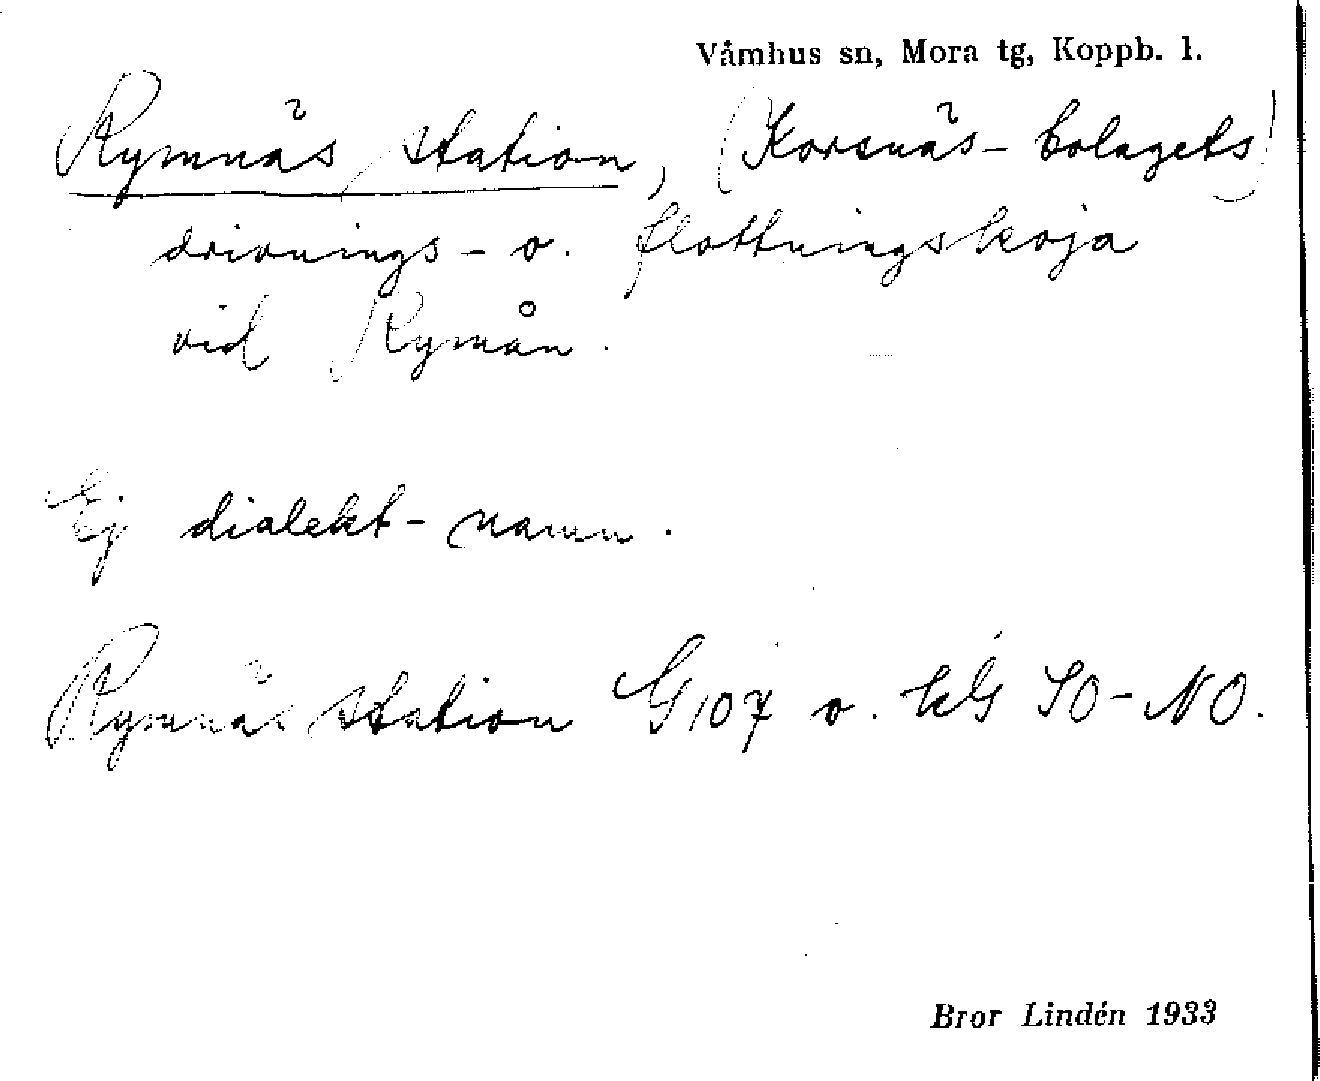 Våmhus sn, Mora tg, Koppb. l.
Rymnäs station, (Korsnäs-bolagets)
drivnings- o. flottningskoja
vid Rymån.
Ej dialekt-namn.
Rymnäs station G107 o. kG SO-NO.
Bror Lindén 1933